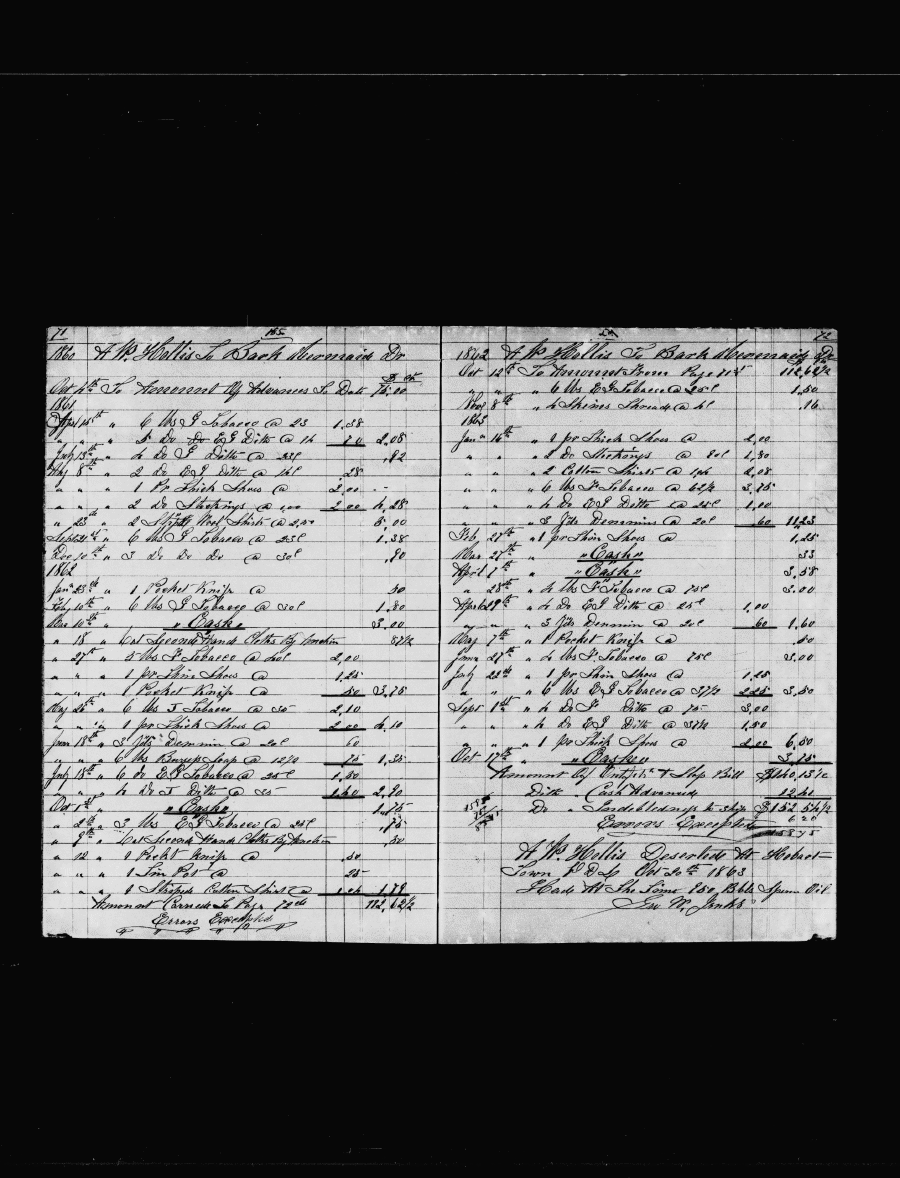 71
1860 A W Hollis To Bark Mermaid Dr
$ cts
Oct 4th To Amount Of Advances To Date 75,00
1861
Apr 14th " 6 lbs J Tobacco @ 23 1.38
" " " 5 Do Do E G Ditto @ 14 70 2,08
July 13th " 4 Do J Ditto @ 23c ,92
Aug 8th " 2 Do E G Ditto @ 14c 28
" " " 1 Pr Thick Shoes @ 2.00
" " " 2 Do Stockings @ 1,00 2 00 4,28
" 23d " 2 Wool Shirts @ 2,50 5,00
Sept 21st " 6 lbs J Tobacco @ 23c 1.38
Dec 10th " 3 Do Do Do @ 30c ,90
1862
Jany 23d " 1 Pocket Knife @ 50
Feby 10th " 6 lbs J Tobacco @ 30c 1,80
Mar 10th " Cash " 3,00
" 18 " Cut Second Hand Cloths By Auction 87 1/2
" 27th " 5 lbs F Tobacco @ 40c 2,00
" " " 1 pr Thin Shoes @ 1,25
" " " 1 Pocket Knife @ 50 3,75
May 25th " 6 lbs J Tobacco @ 35 2,10
" " " 1 pr Thick Shoes @ 2 00 4,10
June 18th " 3 Yds Denmin @ 20c 60
" " " 6 lbs Soap @ 12 1/2 75 1,35
July 18th " 6 do E G Tobacco @ 25c 1,50
" " " 4 Do J Ditto @ 35 1,40 2,90
Oct 1st " Cash " 1,75
" 2nd " 3 lbs E G Tobacco @ 25c ,75
" 9th " Second Hand Cloths By Auction ,50
" 12 " 1 Pocket Knife @ 50
" " " 1 Tin Pot @ 25
" " " 1 Striped Cotton Shirt @ 1,04 1,79
Amount Carried To Page 72nd 112,62 1/2
Errors Excepted
72
1862 A W Hollis To Bark Mermaid Dr
Oct 12th To Amount From Page 71st 112,62 1/2
" " " 6 lbs E G Tobacco @ 25c 1,50
Nov 8th " 4 Skines Thread @ 4c .16
1863
Jany 16th " 1 pr Thick Shoes @ 2,00
" " " 2 Do Stockings @ 90c 1,80
" " " 2 Cotton Shirts @ 104 2,08
" " " 6 lbs F Tobacco @ 62 1/2 3,75
" " " 4 Do E G Ditto @ 25c 1,00
" " " 3 Yds Denmin @ 20c 60 11,23
Feb 27th " 1 pr Thin Shoes @ 1,25
Mar 27th " " Cash " 33
April 7th " " Cash " 3,58
" 28th " 4 lbs F Tobacco @ 75c 3,00
April 29th " 4 Do E G Ditto @ 25c 1,00
" " " 3 Yds Denmin @ 20c 60 1,60
May 7th " 1 Pocket Knife @ 50
June 27th " 4 lbs F Tobacco @ 75c 3,00
July 22nd " 1 pr Thin Shoes @ 1,25
" " " 6 lbs E G Tobacco @ 37 1/2 2 25 3,50
Sept 1st " 4 Do F Ditto @ 75 3,00
" " " 4 Do E G Ditto @ 37 1/2 1,50
" " " 1 pr Thick Shoes @ 2 00 6,50
Oct 17th " " Cash " 3,75
Amount Of Outfits & Ship Bill $140,13 1/2
Ditto Cash Advanced 12,41
Do " Indebtedness to Ship $152 54 1/2
6 20
Errors Excepted 158 75
A W Hollis Deserted At Hobart
Town V D L Oct 20th 1863
Had At The Time 750 Bbls Sperm Oil
Geo W. Jenks